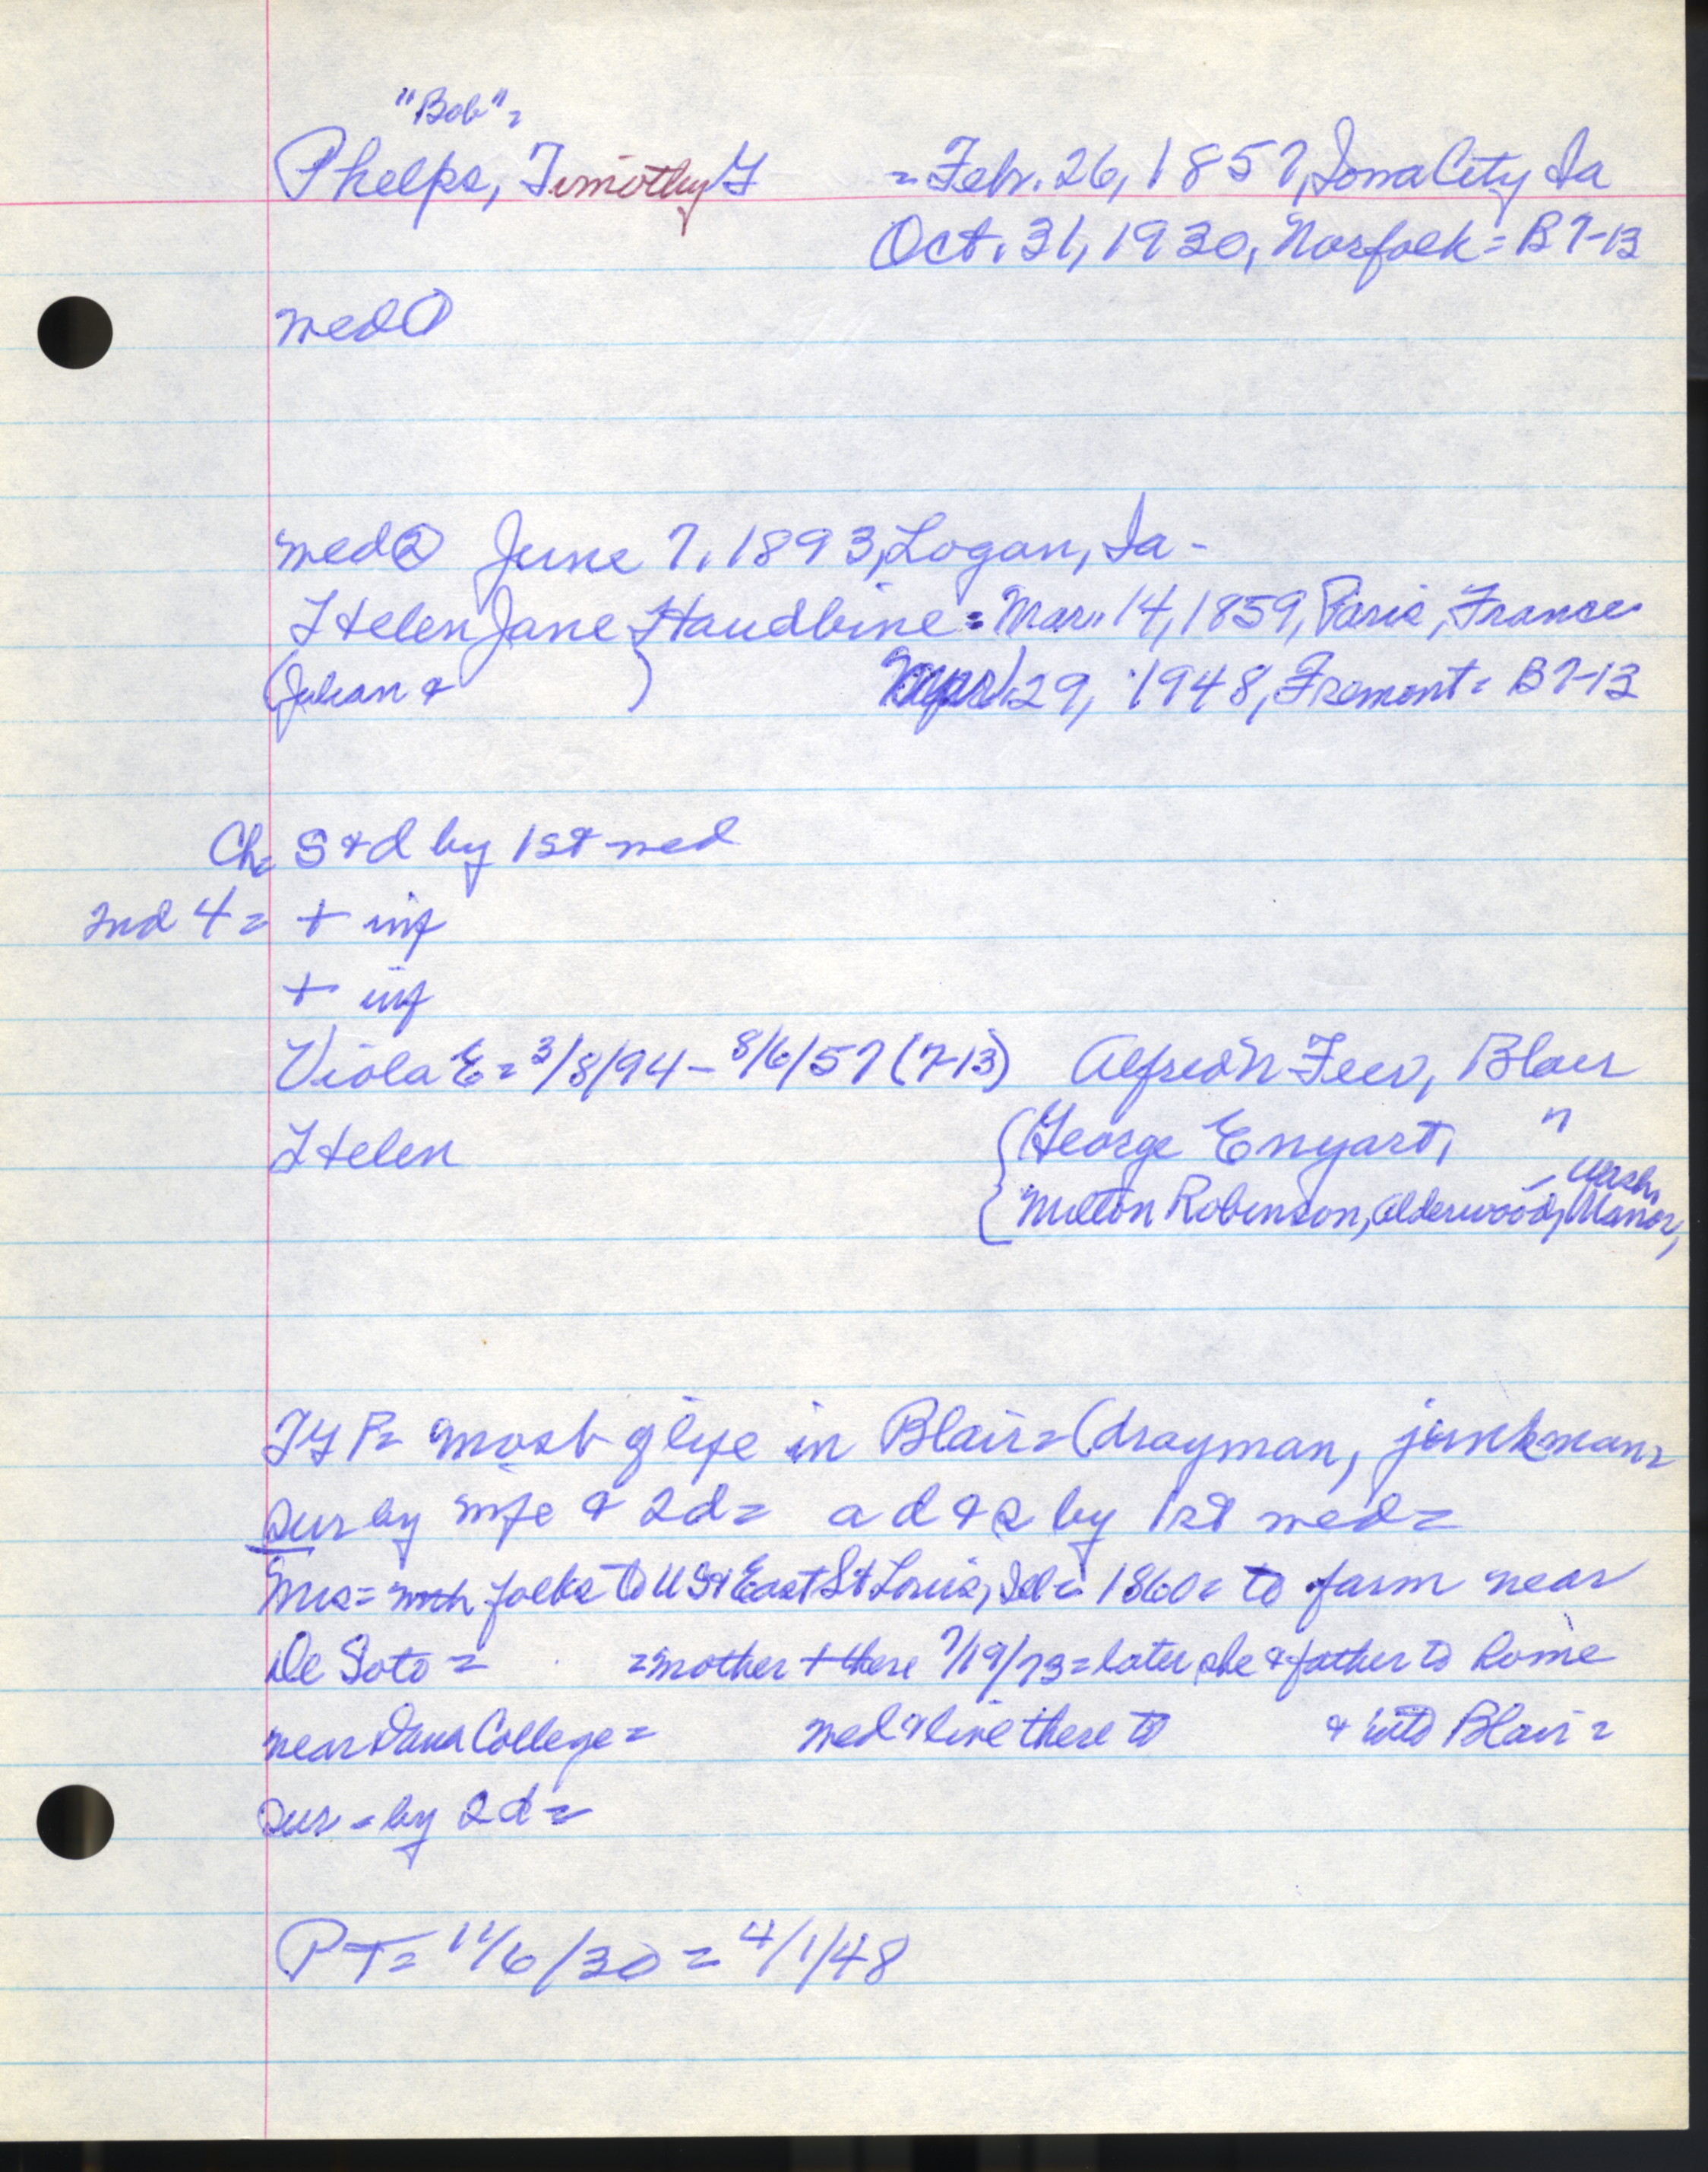 "Bob" =
Phelps, Timothy G = Feb. 26, 1857, Iowa City Ia
Oct. 31, 1930, Norfolk = B 7-13
wed ①
wed ② June 7, 1893, Logan, Ia -
Helen Jane Haudbine = Mar. 14, 1859, Paris, France
(Julian & ) 29, 1948, Fremont = B 7-13
Ch = S & d by 1st wed
2nd 4 = + inf
+ inf
Viola E = 3/8/94 - 8/6/57 (7-13) Alfred N Feer, Blair
Helen {George Enyart, "
{Milton Robinson, Alderwood Manor, Wash.
TGP = most of life in Blair = (drayman, junkman =
sur by wife & 2d = a d & s by 1st wed =
Mrs = with folks to US & East St Louis, Ill in 1860 = to farm near
De Soto = = mother + there 7/19/73 = later she & father to home
near Dana College = wed & live there to & into Blair =
sur - by 2d =
PT = 11/6/30 = 4/1/48